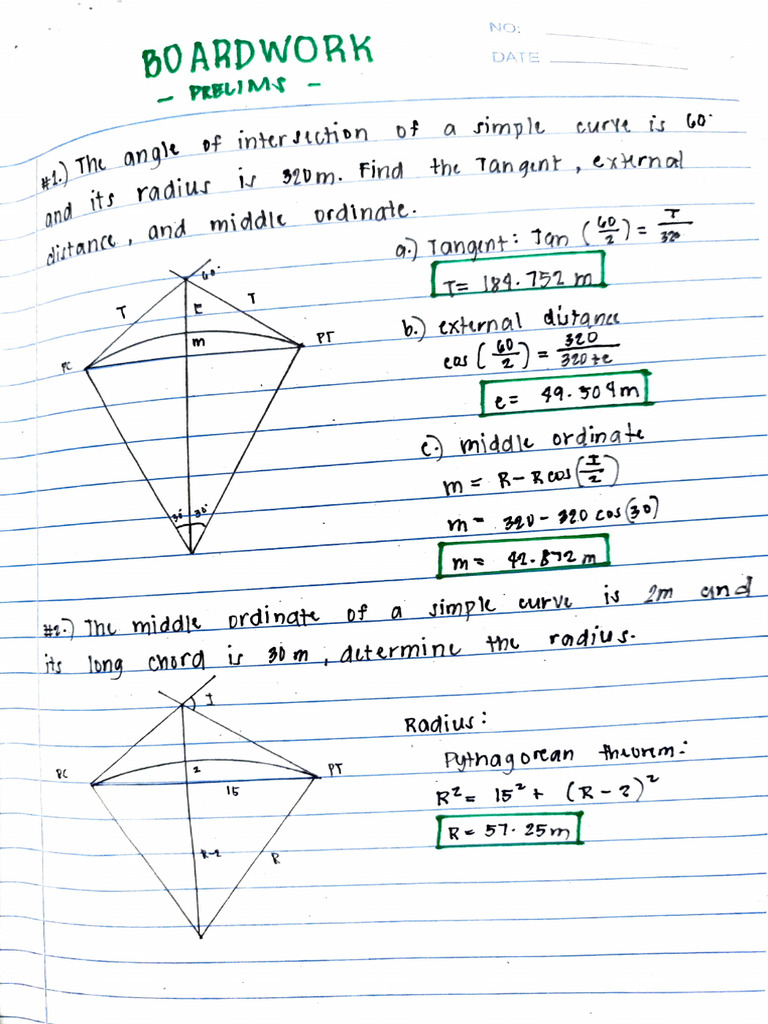 NO:
DATE
BOARDWORK
- PRELIMS -
#1.) The angle of intersection of a simple curve is 60°
and its radius is 320m. Find the Tangent, external
distance, and middle ordinate.
a.) Tangent: Tan (60/2) = T/320
T= 184.752 m
b.) external distance
cos (60/2) = 320/320+e
e= 49.504m
c.) middle ordinate
m= R-Rcos(I/2)
m= 320-320 cos(30)
m= 42.872m
60°
T
E
T
m
PC
PT
30°
30°
#2.) The middle ordinate of a simple curve is 2m and
its long chord is 30m, determine the radius.
Radius:
Pythagorean theorem:
R² = 15² + (R-2)²
R= 57.25m
I
PC
2
PT
15
R-2
R